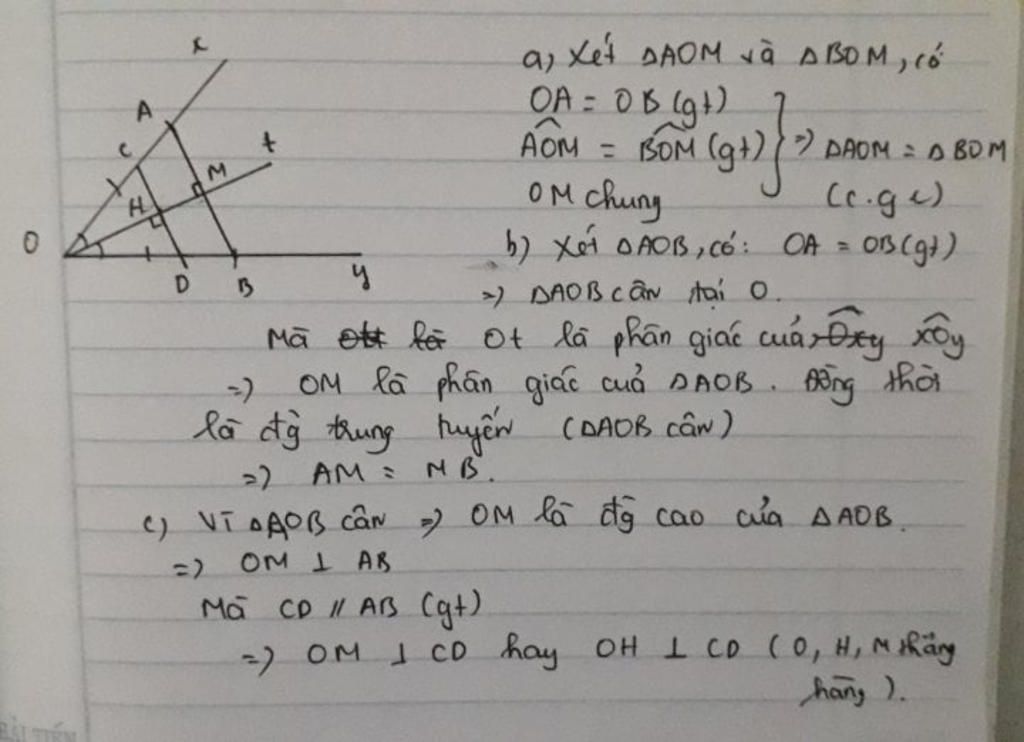 x
A
C
t
M
H
O
D
B
y
a) Xét ΔAOM và ΔBOM, có
OA = OB (gt)
\widehat{AOM} = \widehat{BOM} (gt) } => ΔAOM = ΔBOM
OM chung (c.g c)
b) Xét ΔAOB, có: OA = OB (gt)
=> ΔAOB cân tại O.
Mà Ot là phân giác của \widehat{xOy}
=> OM là phân giác của ΔAOB. Đồng thời
là đg trung tuyến (ΔAOB cân)
=> AM = MB.
c) Vì ΔAOB cân => OM là đg cao của ΔAOB.
=> OM ⊥ AB
Mà CD // AB (gt)
=> OM ⊥ CD hay OH ⊥ CD (O, H, M thẳng
hàng).